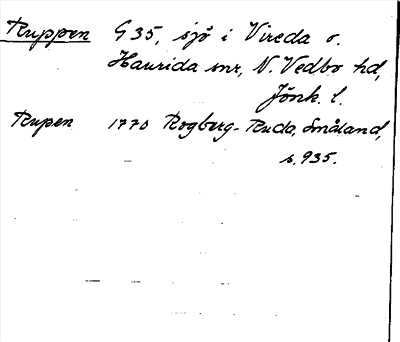 Ruppen G 35, sjö i Vireda o.
Haurida snr, N. Vedbo hd,
Jönk. l.
Rupen 1770 Rogberg-Ruda, Småland,
s. 935.